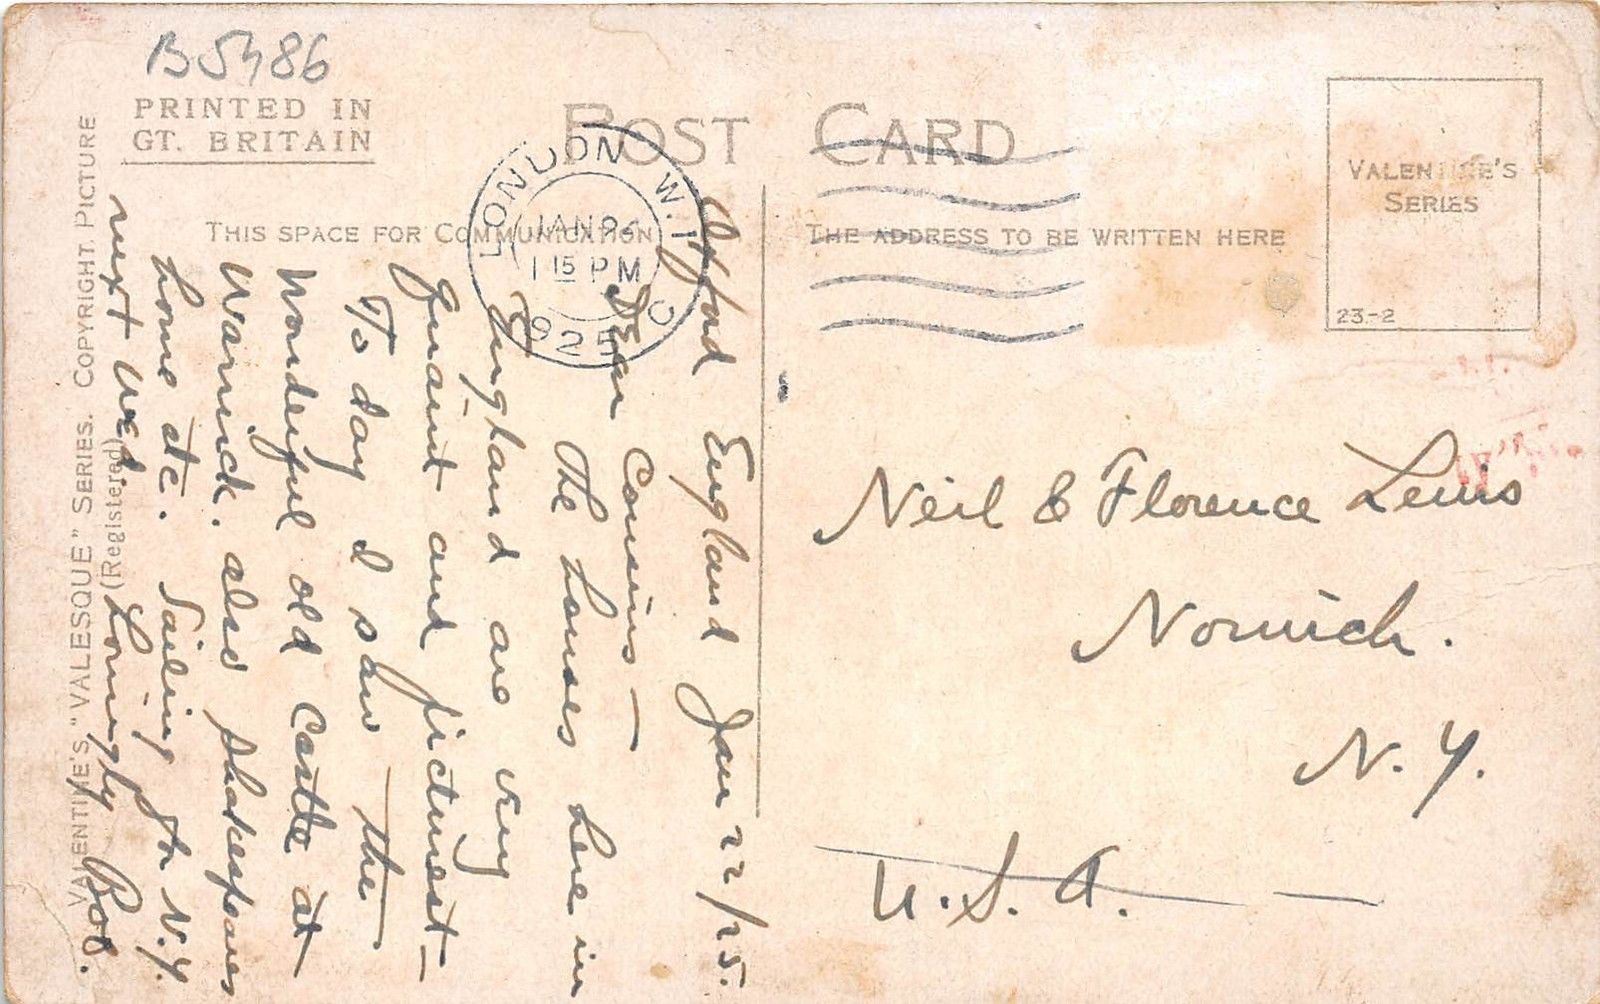 B5486
PRINTED IN
GT. BRITAIN
POST CARD
THIS SPACE FOR COMMUNICATION
THE ADDRESS TO BE WRITTEN HERE
VALENTINE'S
SERIES
23-2
LONDON W.1
JAN 24
1 15 PM
1925
C
Oxford England Jan 22/25.
Dear Cousins—
The houses here in
England are very
quaint and picturest—
To day I saw the
Wonderful old Castle at
Warwick. also Shakespeares
home etc. Sailing for N.Y.
next Wed. Lovingly Bob.
VALENTINE'S "VALESQUE" SERIES. COPYRIGHT PICTURE
(Registered)
Neil & Florence Lewis
Norwich.
N.Y.
U.S.A.